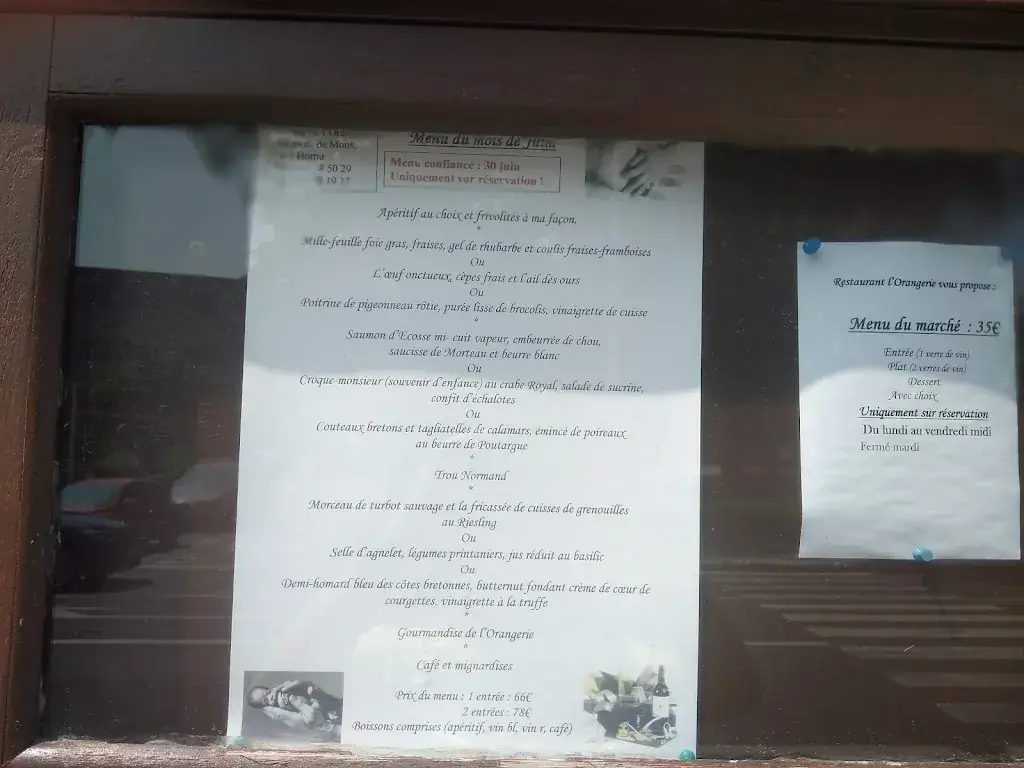 de Mons,
Hornu
8 50 29
Menu du mois de juin.
Menu confiance : 30 juin
Uniquement sur réservation !
Apéritif au choix et frivolités à ma façon.
*
Mille-feuille foie gras, fraises, gel de rhubarbe et coulis fraises-framboises
Ou
L'œuf onctueux, cèpes frais et l'ail des ours
Ou
Poitrine de pigeonneau rôtie, purée lisse de brocolis, vinaigrette de cuisse
*
Saumon d'Ecosse mi- cuit vapeur, embeurrée de chou,
saucisse de Morteau et beurre blanc
Ou
Croque-monsieur (souvenir d'enfance) au crabe Royal, salade de sucrine,
confit d'échalotes
Ou
Couteaux bretons et tagliatelles de calamars, émincé de poireaux
au beurre de Poutargue
*
Trou Normand
*
Morceau de turbot sauvage et la fricassée de cuisses de grenouilles
au Riesling
Ou
Selle d'agnelet, légumes printaniers, jus réduit au basilic
Ou
Demi-homard bleu des côtes bretonnes, butternut fondant crème de cœur de
courgettes, vinaigrette à la truffe
*
Gourmandise de l'Orangerie
*
Café et mignardises
Prix du menu : 1 entrée : 66€
2 entrées : 78€
Boissons comprises (apéritif, vin bl, vin r, café)
Restaurant l'Orangerie vous propose :
Menu du marché : 35€
Entrée (1 verre de vin)
Plat (2 verres de vin)
Dessert
Avec choix
Uniquement sur réservation
Du lundi au vendredi midi
Fermé mardi